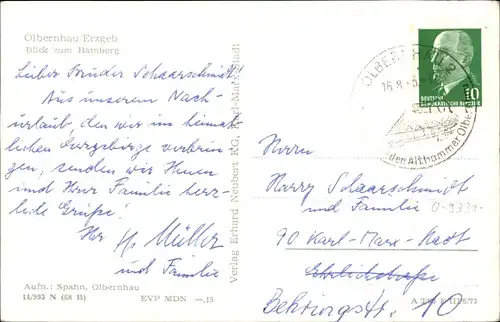 Olbernhau/Erzgeb.
Blick zum Hainberg
Lieber Bruder Schaarschmidt!
Aus unserem Nach-
urlaub, den wir im heimat-
lichen Erzgebirge verbrin-
gen, senden wir Ihnen
und Ihrer Familie herz-
liche Grüße!
Ihr Müller
und Familie
Aufn.: Spahn, Olbernhau
14/993 N (68 11)
EVP MDN —,15
Verlag Erhard Neubert KG, Karl-Marx-Stadt
OLBERNHAU 2
16.8.
DEUTSCHE
DEMOKRATISCHE REPUBLIK
10
den Althammer
Herrn
Harry Schaarschmidt
und Familie
90 Karl-Marx-Stadt
Behringstr. 10